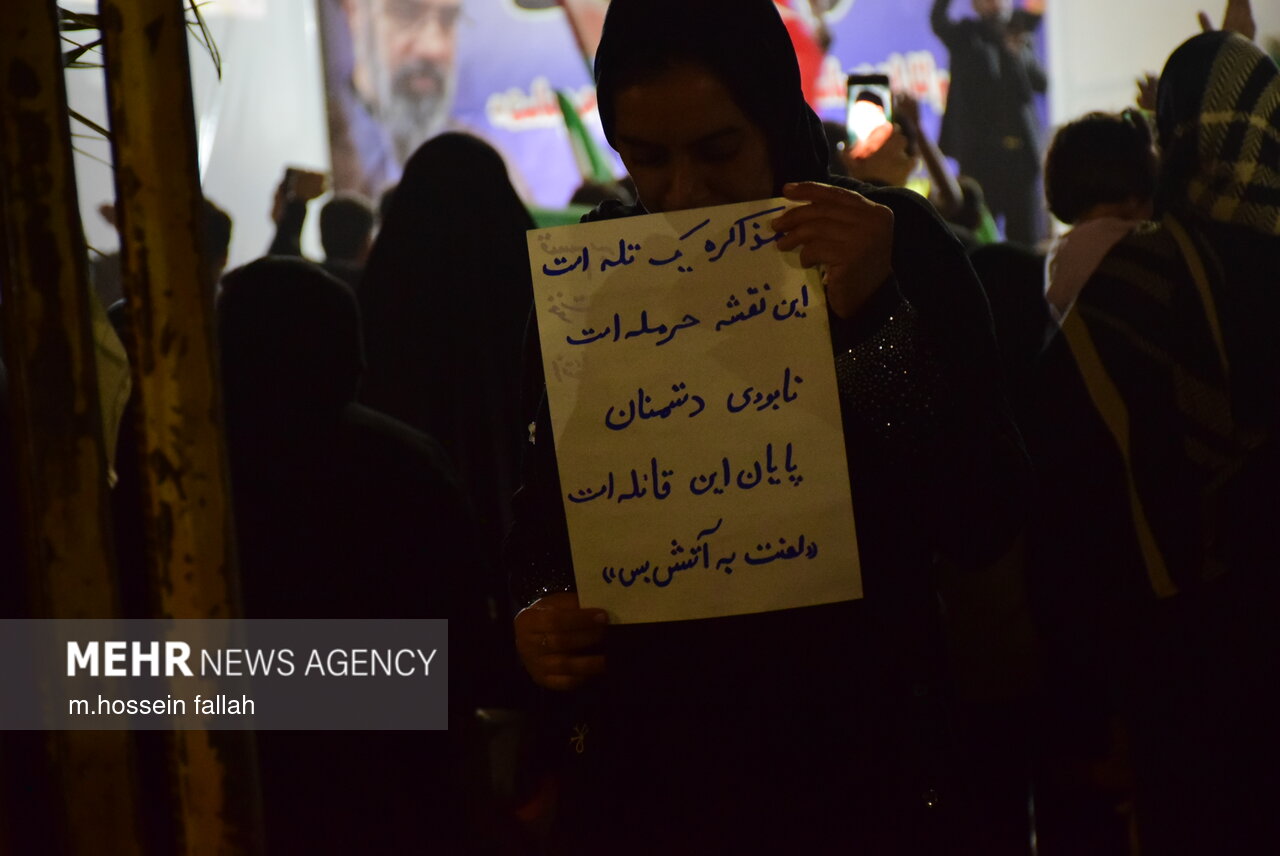 مذاکره یک تله است
این نقشه حرمله است
نابودی دشمنان
پایان این قائله است
«لعنت به آتش بس»
MEHR NEWS AGENCY
m.hossein fallah